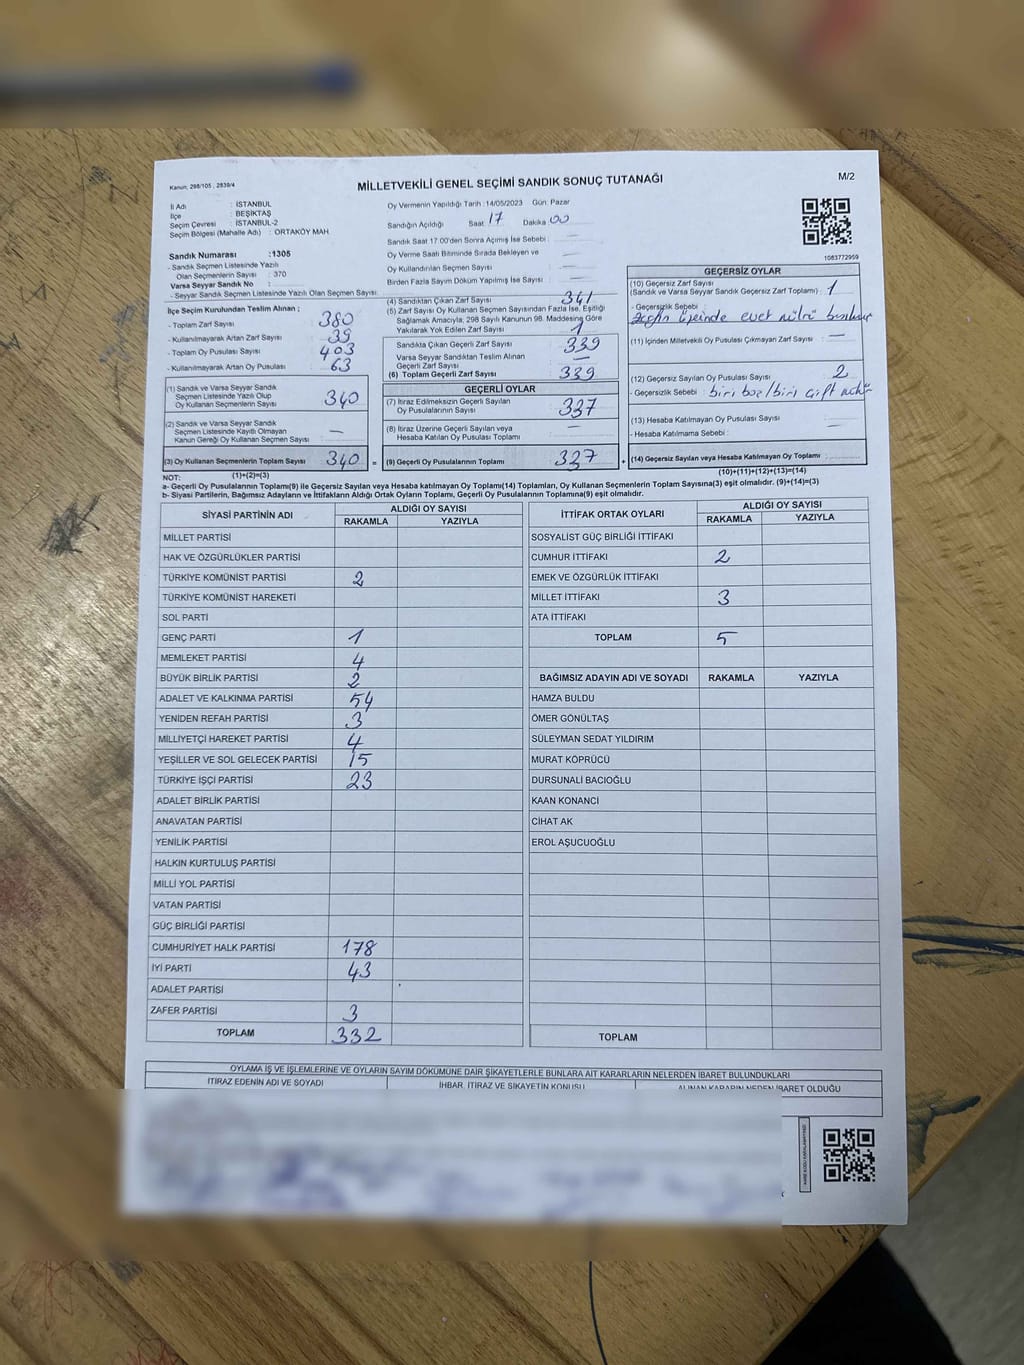 Kanun, 298/105 , 2839/4
MİLLETVEKİLİ GENEL SEÇİMİ SANDIK SONUÇ TUTANAĞI
M/2
İl Adı : İSTANBUL
İlçe : BEŞİKTAŞ
Seçim Çevresi : İSTANBUL-2
Seçim Bölgesi (Mahalle Adı) : ORTAKÖY MAH
Sandık Numarası :1305
- Sandık Seçmen Listesinde Yazılı
Olan Seçmenlerin Sayısı : 370
Varsa Seyyar Sandık No :
- Seyyar Sandık Seçmen Listesinde Yazılı Olan Seçmen Sayısı
Oy Vermenin Yapıldığı Tarih : 14/05/2023 Gün: Pazar
Sandığın Açıldığı Saat 17 Dakika 00
Sandık Saat 17.00'den Sonra Açılmış İse Sebebi : —
Oy Verme Saati Bitiminde Sırada Bekleyen ve
Oy Kullandırılan Seçmen Sayısı : —
Birden Fazla Sayım Döküm Yapılmış İse Sayısı : —
1083772959
İlçe Seçim Kurulundan Teslim Alınan ;
- Toplam Zarf Sayısı : 380
- Kullanılmayarak Artan Zarf Sayısı : 39
- Toplam Oy Pusulası Sayısı : 403
- Kullanılmayarak Artan Oy Pusulası : 63
(1) Sandık ve Varsa Seyyar Sandık
Seçmen Listesinde Yazılı Olup
Oy Kullanan Seçmenlerin Sayısı : 340
(2) Sandık ve Varsa Seyyar Sandık
Seçmen Listesinde Kayıtlı Olmayan
Kanun Gereği Oy Kullanan Seçmen Sayısı : —
(3) Oy Kullanan Seçmenlerin Toplam Sayısı : 340 =
(1)+(2)=(3)
(4) Sandıktan Çıkan Zarf Sayısı : 341
(5) Zarf Sayısı Oy Kullanan Seçmen Sayısından Fazla İse, Eşitliği
Sağlamak Amacıyla, 298 Sayılı Kanunun 98. Maddesine Göre
Yakılarak Yok Edilen Zarf Sayısı : 1
Sandıkta Çıkan Geçerli Zarf Sayısı : 339
Varsa Seyyar Sandıktan Teslim Alınan
Geçerli Zarf Sayısı : —
(6) Toplam Geçerli Zarf Sayısı : 339
GEÇERLİ OYLAR
(7) İtiraz Edilmeksizin Geçerli Sayılan
Oy Pusulalarının Sayısı : 337
(8) İtiraz Üzerine Geçerli Sayılan veya
Hesaba Katılan Oy Pusulası Toplamı : —
(9) Geçerli Oy Pusulalarının Toplamı : 337 +
GEÇERSİZ OYLAR
(10) Geçersiz Zarf Sayısı
(Sandık ve Varsa Seyyar Sandık Geçersiz Zarf Toplamı) : 1
- Geçersizlik Sebebi : içinde evet mührü
(11) İçinden Milletvekili Oy Pusulası Çıkmayan Zarf Sayısı : —
(12) Geçersiz Sayılan Oy Pusulası Sayısı : 2
- Geçersizlik Sebebi : biri boş/biri çift
(13) Hesaba Katılmayan Oy Pusulası Sayısı : —
- Hesaba Katılmama Sebebi :
(14) Geçersiz Sayılan veya Hesaba Katılmayan Oy Toplamı :
(10)+(11)+(12)+(13)=(14)
NOT:
a- Geçerli Oy Pusulalarının Toplamı(9) ile Geçersiz Sayılan veya Hesaba Katılmayan Oy Toplamı(14) Toplamları, Oy Kullanan Seçmenlerin Toplam Sayısına(3) eşit olmalıdır. (9)+(14)=(3)
b- Siyasi Partilerin, Bağımsız Adayların ve İttifakların Aldığı Ortak Oyların Toplamı, Geçerli Oy Pusulalarının Toplamına(9) eşit olmalıdır.
SİYASİ PARTİNİN ADI ALDIĞI OY SAYISI
RAKAMLA YAZIYLA
MİLLET PARTİSİ
HAK VE ÖZGÜRLÜKLER PARTİSİ
TÜRKİYE KOMÜNİST PARTİSİ 2
TÜRKİYE KOMÜNİST HAREKETİ
SOL PARTİ
GENÇ PARTİ 1
MEMLEKET PARTİSİ 4
BÜYÜK BİRLİK PARTİSİ 2
ADALET VE KALKINMA PARTİSİ 54
YENİDEN REFAH PARTİSİ 3
MİLLİYETÇİ HAREKET PARTİSİ 4
YEŞİLLER VE SOL GELECEK PARTİSİ 15
TÜRKİYE İŞÇİ PARTİSİ 23
ADALET BİRLİK PARTİSİ
ANAVATAN PARTİSİ
YENİLİK PARTİSİ
HALKIN KURTULUŞ PARTİSİ
MİLLİ YOL PARTİSİ
VATAN PARTİSİ
GÜÇ BİRLİĞİ PARTİSİ
CUMHURİYET HALK PARTİSİ 178
İYİ PARTİ 43
ADALET PARTİSİ
ZAFER PARTİSİ 3
TOPLAM 332
İTTİFAK ORTAK OYLARI ALDIĞI OY SAYISI
RAKAMLA YAZIYLA
SOSYALİST GÜÇ BİRLİĞİ İTTİFAKI
CUMHUR İTTİFAKI 2
EMEK VE ÖZGÜRLÜK İTTİFAKI
MİLLET İTTİFAKI 3
ATA İTTİFAKI
TOPLAM 5
BAĞIMSIZ ADAYIN ADI VE SOYADI RAKAMLA YAZIYLA
HAMZA BULDU
ÖMER GÖNÜLTAŞ
SÜLEYMAN SEDAT YILDIRIM
MURAT KÖPRÜCÜ
DURSUNALİ BACIOĞLU
KAAN KONANCİ
CİHAT AK
EROL AŞUCUOĞLU
TOPLAM
OYLAMA İŞ VE İŞLEMLERİNE VE OYLARIN SAYIM DÖKÜMÜNE DAİR ŞİKAYETLERLE BUNLARA AİT KARARLARIN NELERDEN İBARET BULUNDUKLARI
İTİRAZ EDENİN ADI VE SOYADI İHBAR, İTİRAZ VE ŞİKAYETİN KONUSU ALINAN KARARIN NEDEN İBARET OLDUĞU